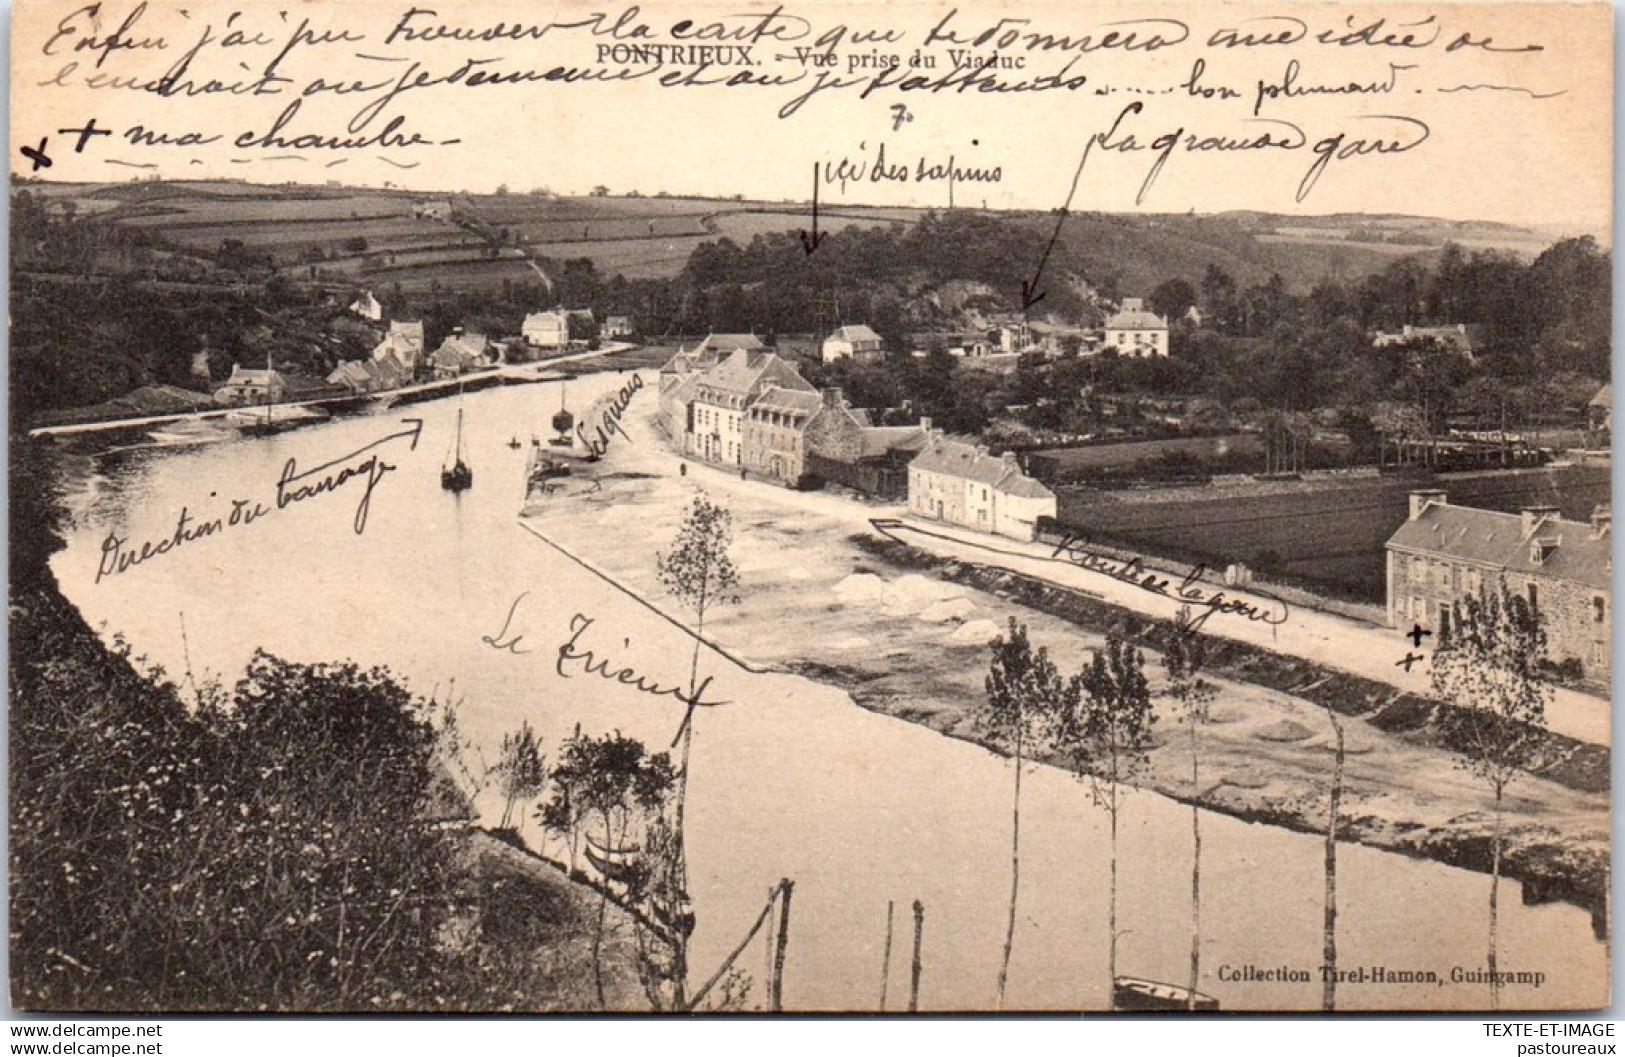 Enfin j'ai pu trouver la carte que te donnera une idée de
PONTRIEUX. - Vue prise du Viaduc
l'endroit où je demeure et où je t'attends ...... bon plumard.
+ ma chambre
La grande gare
ici des sapins
Les quais
Direction du barrage
Route de la gare
Le Trieux
Collection Tirel-Hamon, Guingamp
www.delcampe.net
TEXTE-ET-IMAGE
www.delcampe.net
pastoureaux